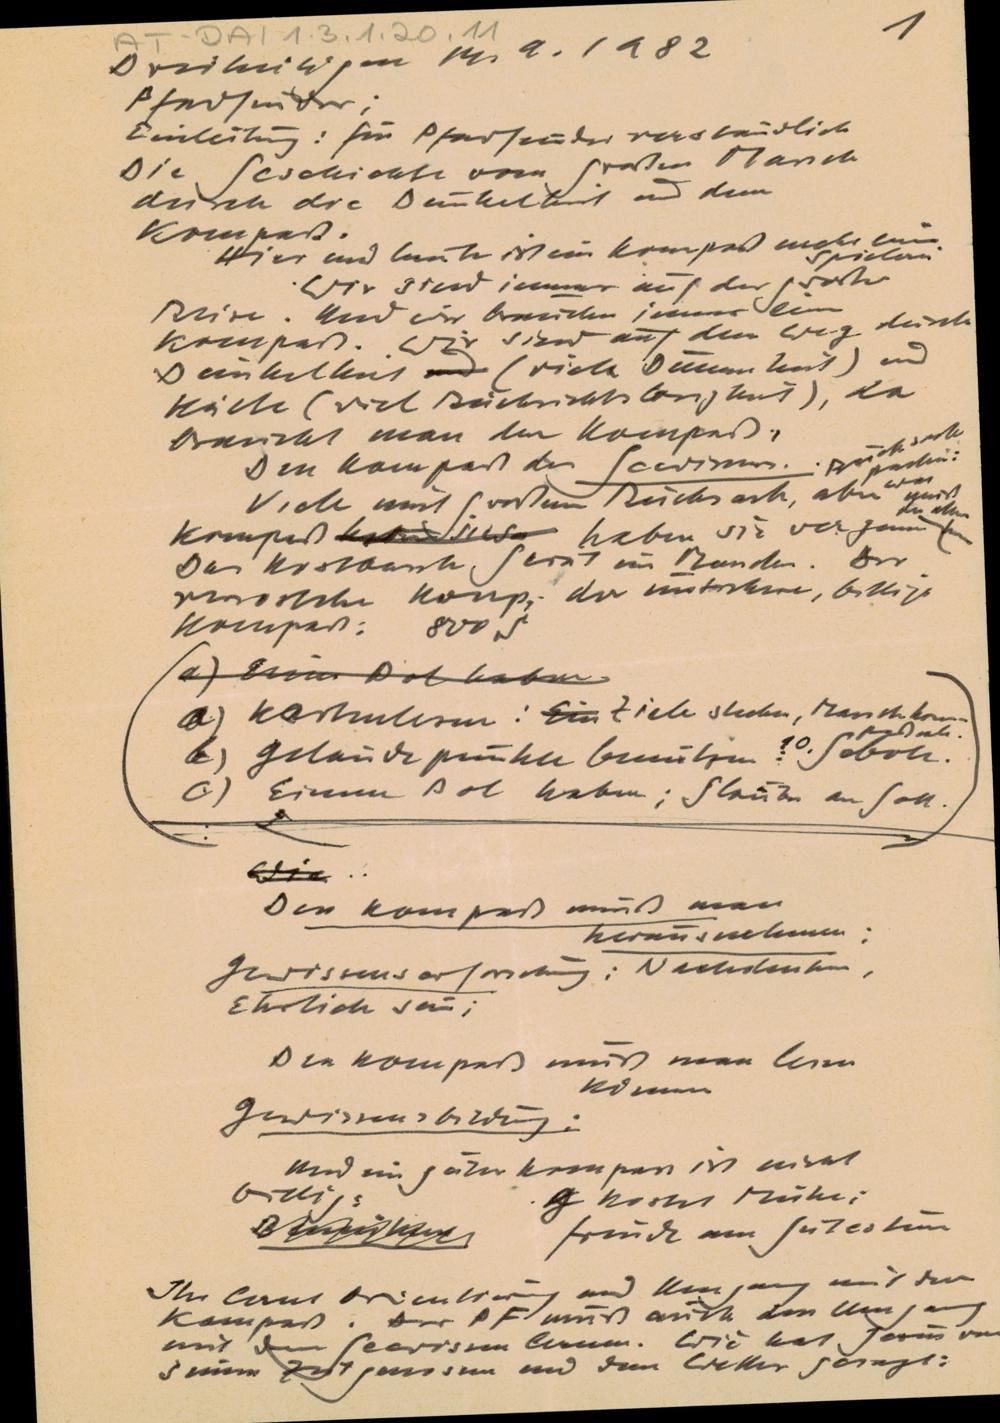 1
AT-DAI 1.3.1.20.11
Dreiheiligen 9. 1982
Pfadfinder;
Einleitung: für Pfadfinder verständlich
Die Geschichte vom großen Marsch
durch die Dunkelheit und dem
Kompaß.
Hier und heute ist ein Kompaß mehr
Wir sind immer auf der großen
Reise. Und wir brauchen immer ein
Kompaß. Wir sind auf dem Weg durch
Dunkelheit und (viele Dummheit) und
Kälte (viel Rücksichtslosigkeit), da
braucht man den Kompaß.
Den Kompaß des Gewissens. Rucksack
packen:
Viele mit großem Rucksack, aber was
muß
Kompaß haben sie vergessen
Das kostbarste Gerät im Dunkeln. Der
Komp; der billige
Kompaß: 800 S
a) Einen Pol haben
a) Kartenlesen: Ein Ziele stecken, Marsch
b) Geländepunkte benützen 10 Gebote.
c) Einen Pol haben; Glaube an Gott.
Wie
Den Kompaß muß man
herausnehmen:
Gewissenserforschung: Nachdenken,
Ehrlich sein;
Den Kompaß muß man lesen
können
Gewissensbildung:
Und ein guter Kompass ist nicht
billig: kostet Mühe:
Freude am Gutes tun
Ihr lernt Orientierung und Umgang mit dem
Kompaß. Der PF muß auch den Umgang
mit dem Gewissen lernen. Wie hat Jesus von
seinen Zeitgenossen und dem Wetter gesagt: